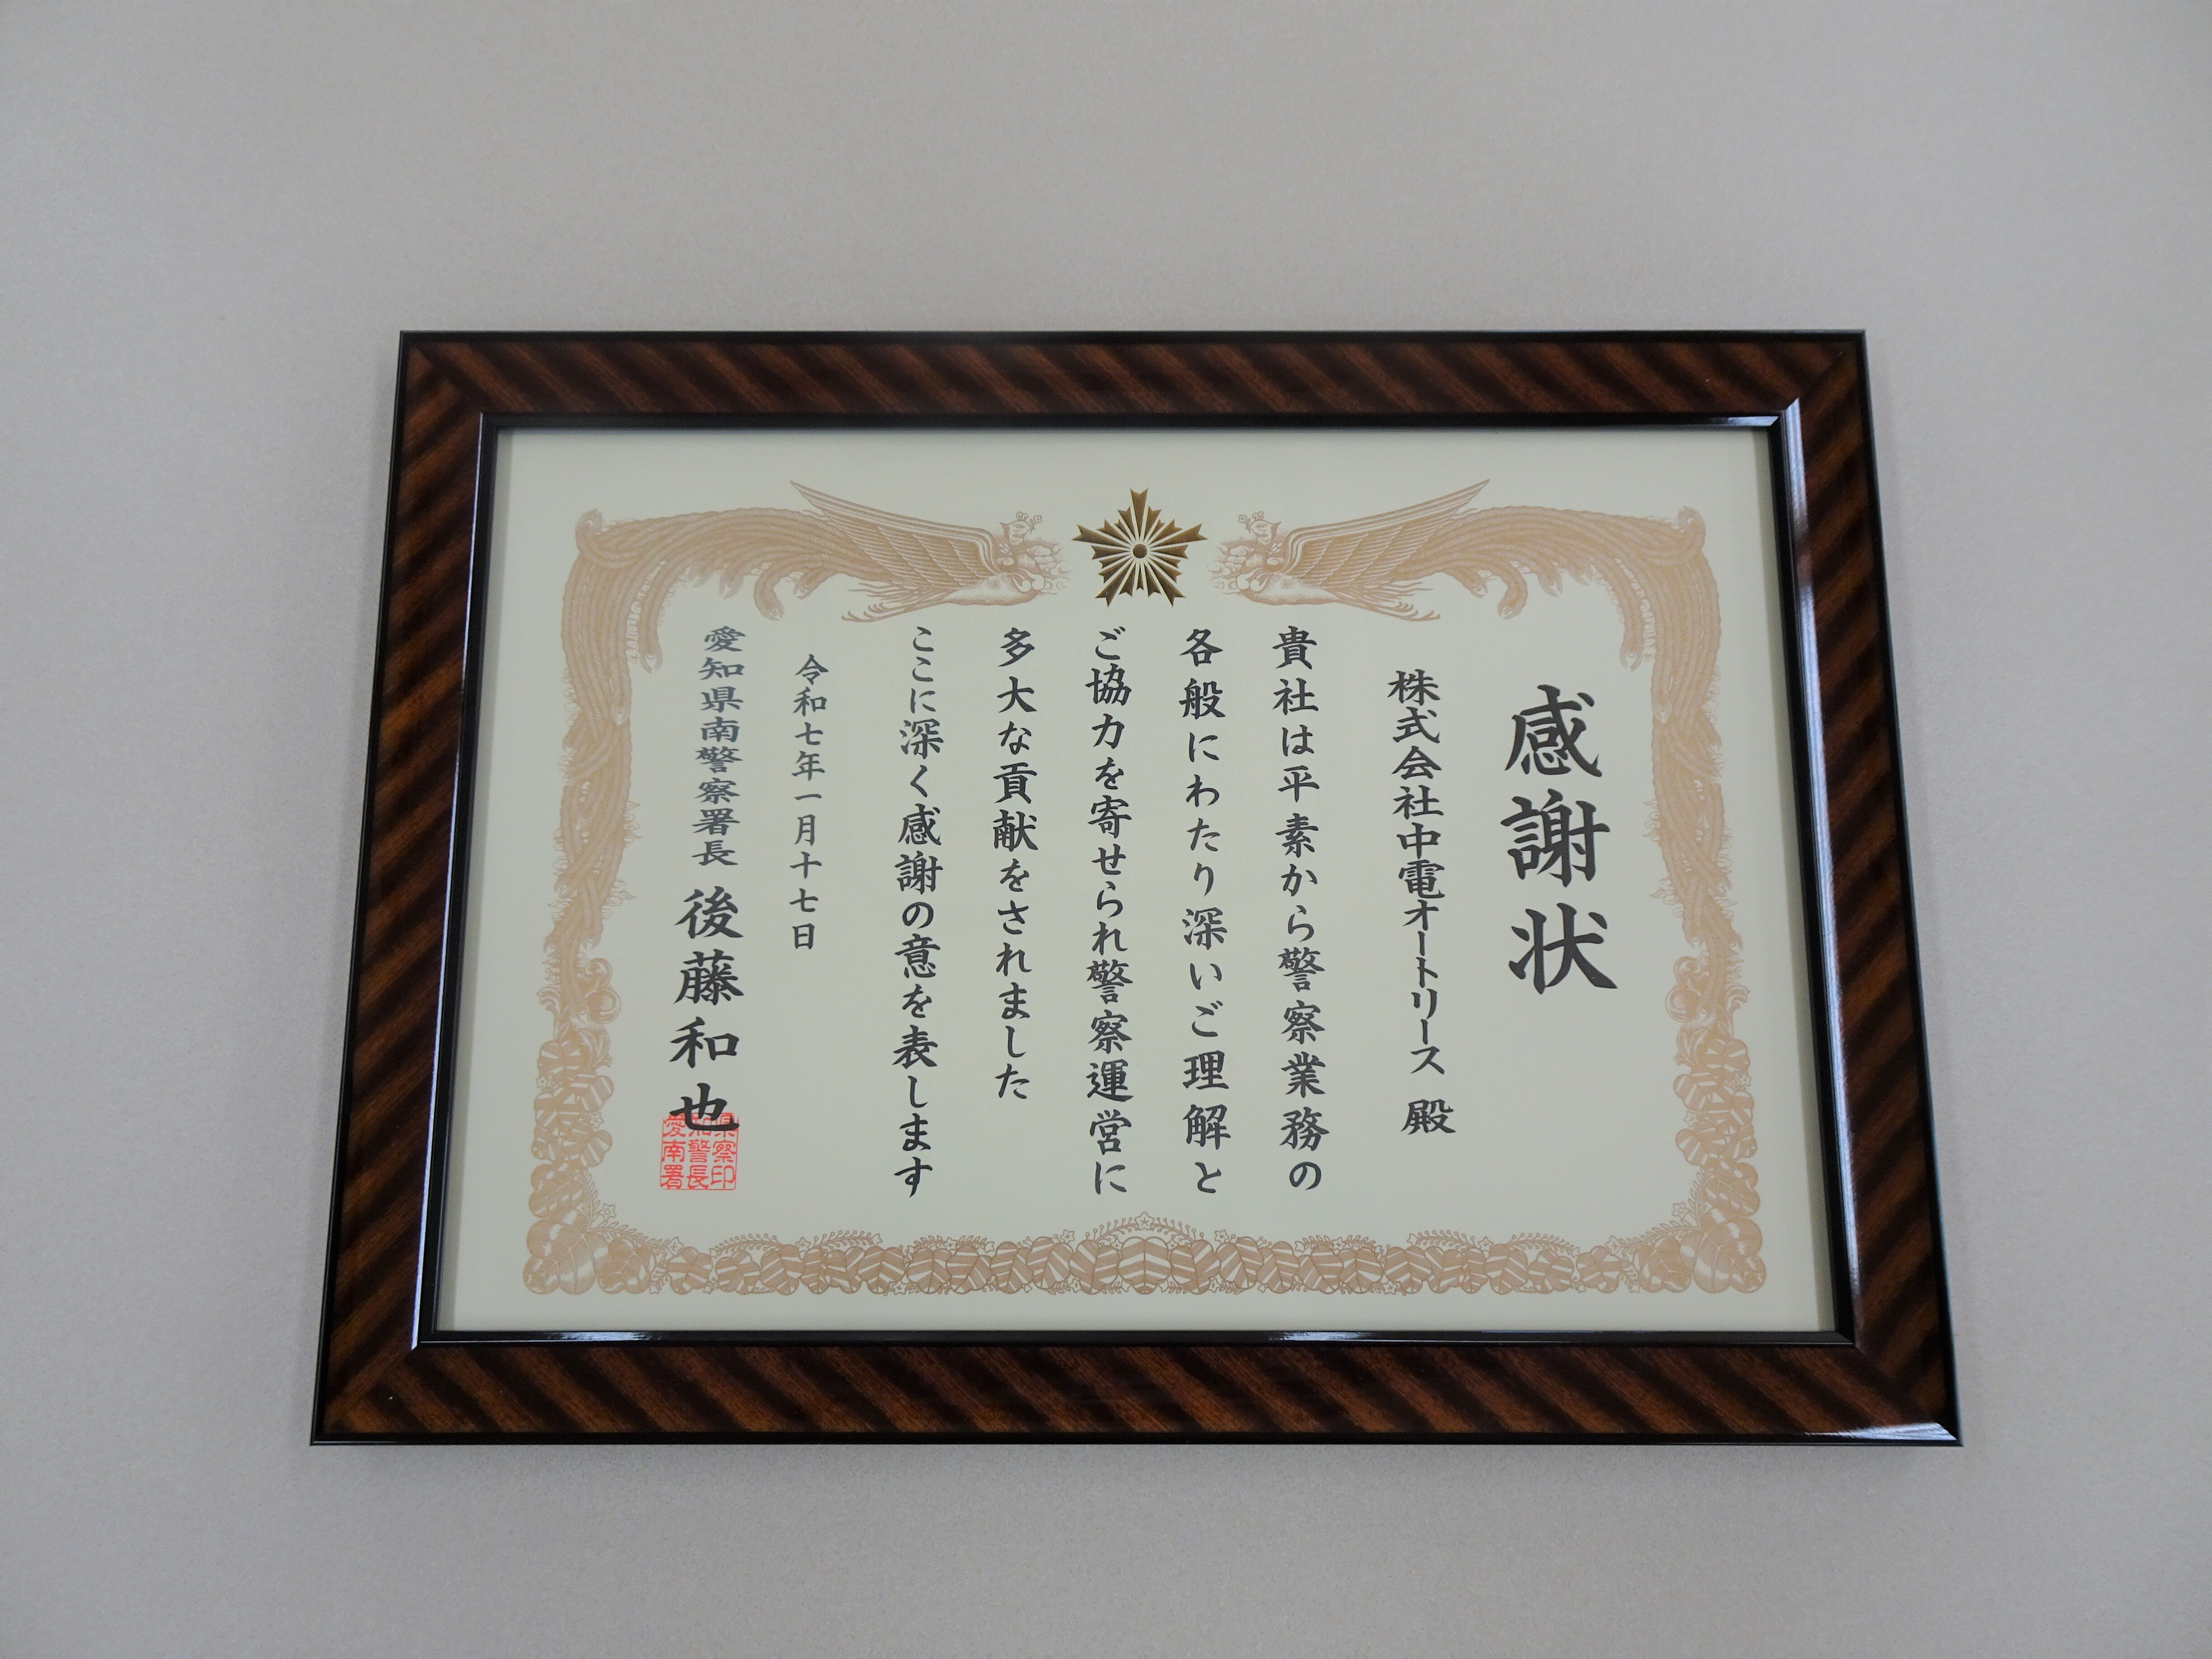 感謝状
株式会社中電オートリース 殿
貴社は平素から警察業務の
各般にわたり深いご理解と
ご協力を寄せられ警察運営に
多大な貢献をされました
ここに深く感謝の意を表します
令和七年一月十七日
愛知県南警察署長 後藤和也
愛知県
南警察
署長印